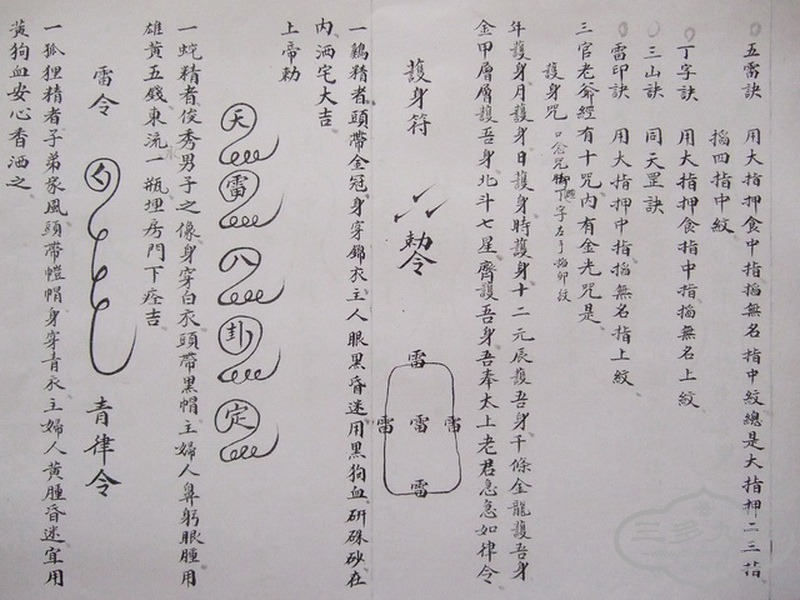 五雷訣 用大指押食中指掐無名指中紋總是大指押二三指
掐四指中紋
丁字訣 用大指押食指中指掐無名上紋
三山訣 同天罡訣
雷印訣 用大指押中指掐無名指上紋
三官老爺經有十咒內有金光咒是
護身咒 口念咒腳丁字左手掐卯紋
年護身月護身日護身時護身十二元辰護吾身千條金龍護吾身
金甲層層護吾身北斗七星齊護吾身吾奉太上老君急急如律令
護身符 勅令 雷 雷 雷 雷 雷
一鷄精者頭帶金冠身穿錦衣主人眼黑昏迷用黑狗血研硃砂在
內洒宅大吉
上帝勅
天 雷 八 卦 定
一蛇精者俊秀男子之像身穿白衣頭帶黑帽主婦人鼻芻眼腫用
雄黃五錢東流水一瓶埋房門下痊吉
雷令 青律令
一狐狸精者子弟家風頭帶帽身穿青衣主婦人黃腫昏迷宜用
黃狗血安心香洒之
三多